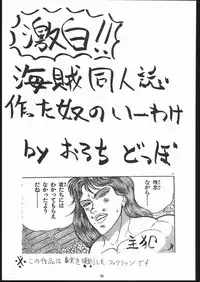 激白!!
海賊同人誌
作った奴のいーわけ
by おろち どっぽ
残念
ながら…
君たちには
わかって
もらえ
なかったよう
だね…
主犯
※この作品は事実を横断したフィクションです